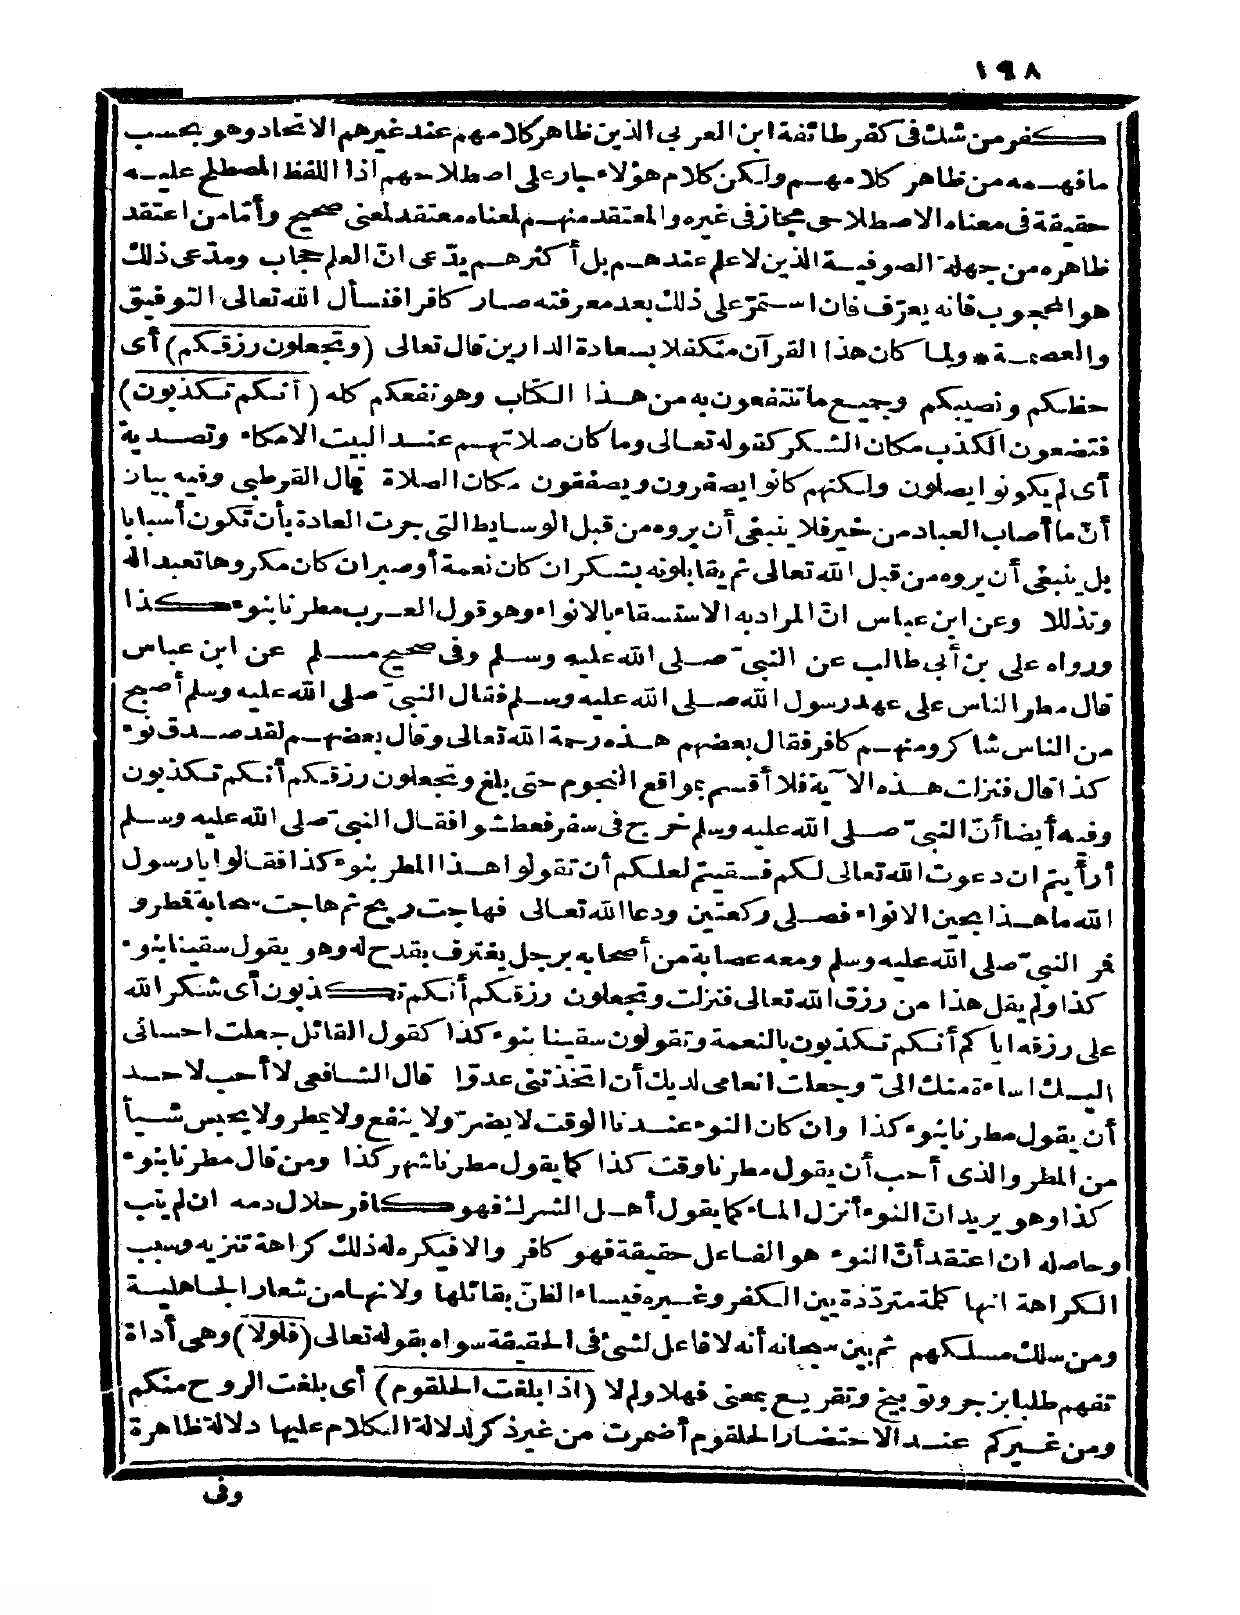 ١٩٨
كفر من شك فى كفر طائفة ابن العربى الذين ظاهر كلامهم عند غيرهم الاتحاد وهو بحسب
ما فهمه من ظاهر كلامهم ولكن كلام هؤلاء جار على اصطلاحهم اذ اللفظ المصطلح عليه
حقيقة فى معناه الاصطلاحى مجاز فى غيره والمعتقد منهم لمعناه معتقد لمعنى صحيح وأمّا من اعتقد
ظاهره من جهلة الصوفية الذين لا علم عندهم بل أكثرهم يدّعى انّ العلم حجاب ومدّعى ذلك
هو المحجوب فانه يعرّف فان استمرّ على ذلك بعد معرفته صار كافرا فنسأل الله تعالى التوفيق
والعصمة * ولما كان هذا القرآن متكفلا بسعادة الدارين قال تعالى (وتجعلون رزقكم) أى
حظكم ونصيبكم وجميع ما تنتفعون به من هذا الكتاب وهو نفعكم كله (أنكم تكذبون)
فتضعون الكذب مكان الشكر كقوله تعالى وما كان صلاتهم عند البيت الا مكاء وتصدية
أى لم يكونوا يصلون ولكنهم كانوا يصفرون ويصفقون مكان الصلاة قال القرطبى وفيه بيان
أنّ ما أصاب العباد من خير فلا ينبغى أن يروه من قبل الوسايط التى جرت العادة بأن تكون أسبابا
بل ينبغى أن يروه من قبل الله تعالى ثم يقابلونه بشكر ان كان نعمة أو صبر ان كان مكروها تعبدا له
وتذللا وعن ابن عباس انّ المراد به الاستسقاء بالانواء وهو قول العرب مطرنا بنوء كذا
ورواه على بن أبى طالب عن النبىّ صلى الله عليه وسلم وفى صحيح مسلم عن ابن عباس
قال مطر الناس على عهد رسول الله صلى الله عليه وسلم فقال النبىّ صلى الله عليه وسلم أصبح
من الناس شاكر ومنهم كافر فقال بعضهم هذه رحمة الله تعالى وقال بعضهم لقد صدق نوء
كذا قال فنزلت هذه الآية فلا أقسم بمواقع النجوم حتى بلغ وتجعلون رزقكم أنكم تكذبون
وفيه أيضا أنّ النبىّ صلى الله عليه وسلم خرج فى سفر فعطشوا فقال النبىّ صلى الله عليه وسلم
أرأيتم ان دعوت الله تعالى لكم فسقيتم لعلكم أن تقولوا هذا المطر بنوء كذا فقالوا يا رسول
الله ما هذا بحين الانواء فصلى ركعتين ودعا الله تعالى فهاجت ريح ثم هاجت سحابة فمطروا
فمر النبىّ صلى الله عليه وسلم ومعه عصابة من أصحابه برجل يغترف بقدح له وهو يقول سقينا بنوء
كذا ولم يقل هذا من رزق الله تعالى فنزلت وتجعلون رزقكم أنكم تكذبون أى شكر الله
على رزقه اياكم أنكم تكذبون بالنعمة وتقولون سقينا بنوء كذا كقول القائل جعلت احسانى
اليك اساءة منك الىّ وجعلت انعامى لديك أن اتخذتنى عدوّا قال الشافعى لا أحب لاحد
أن يقول مطرنا بنوء كذا وان كان النوء عندنا الوقت لا يضرّ ولا ينفع ولا يمطر ولا يحبس شيأ
من المطر والذى أحب أن يقول مطرنا وقت كذا كما يقول مطرنا شهر كذا ومن قال مطرنا بنوء
كذا وهو يريد انّ النوء أنزل الماء كما يقول أهل الشرك فهو كافر حلال دمه ان لم يتب
وحاصله ان اعتقد أنّ النوء هو الفاعل حقيقة فهو كافر والا فيكره له ذلك كراهة تنزيه وسبب
الكراهة انها كلمة متردّدة بين الكفر وغيره فيساء الظنّ بقائلها ولانها من شعار الجاهلية
ومن سلك مسلكهم ثم بين سبحانه أنه لا فاعل لشئ فى الحقيقة سواه بقوله تعالى (فلولا) وهى أداة
تفهم طلبا بزجر وتوبيخ وتقريع بمعنى فهلا ولم لا (اذا بلغت الحلقوم) أى بلغت الروح منكم
ومن غيركم عند الاحتضار الحلقوم أضمرت من غير ذكر لدلالة الكلام عليها دلالة ظاهرة
وفى